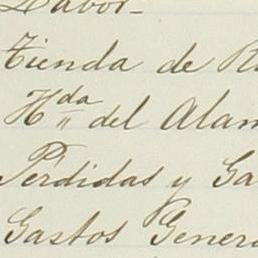 Labor-
Tienda de R
Hda del Alam
Perdidas y Ga
Gastos Genera